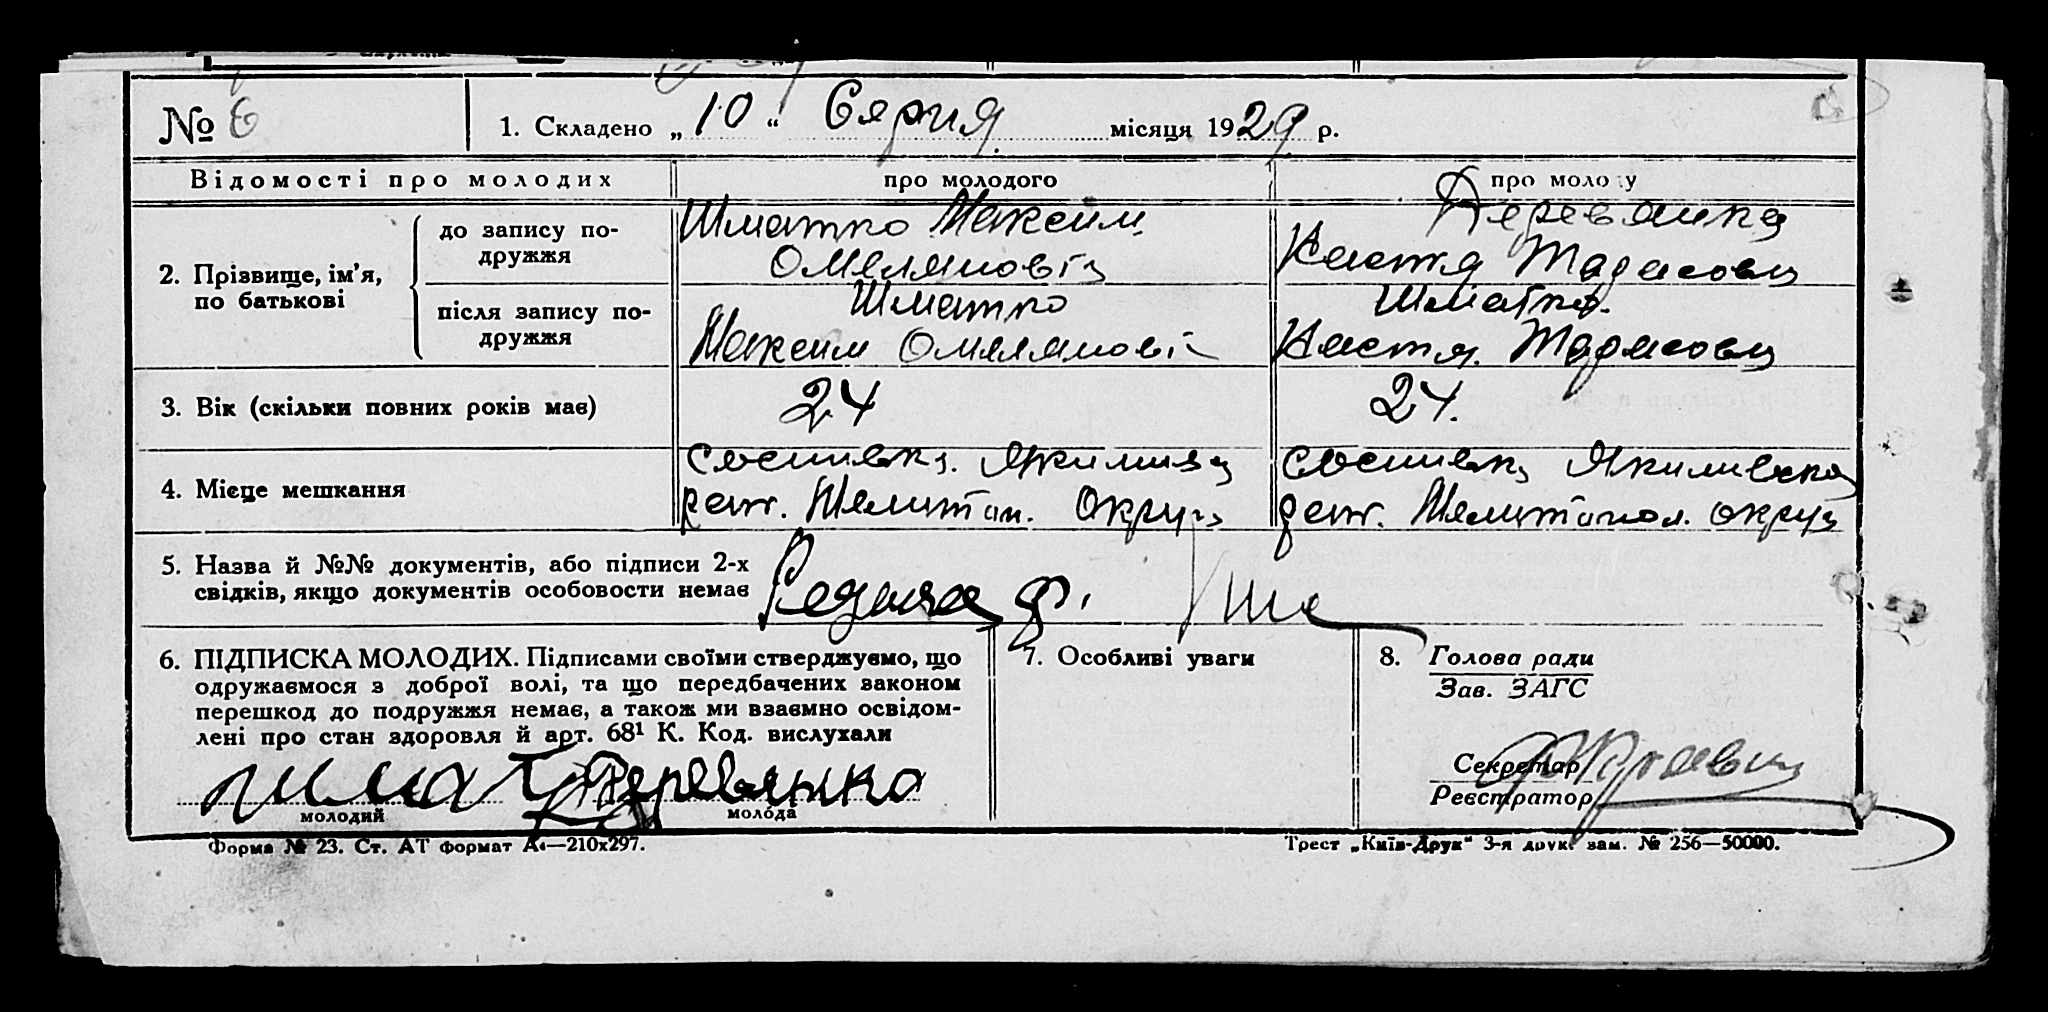 № 6
1. Складено „10“ Серпня місяця 1929 р.
Відомості про молодих
про молодого
про молоду
2. Прізвище, ім’я, по батькові
до запису по-
дружжя
Шматко Максим
Омелянович
Деревянко
Настя Тарасовна
після запису по-
дружжя
Шматко
Максим Омелянович
Шматко.
Настя Тарасовна
3. Вік (скільки повних років має)
24
24.
4. Місце мешкання
Якимивськ
рай. Мелитоп. Округи
Якимивськ
рай. Мелитопол. округи
5. Назва й №№ документів, або підписи 2-х
свідків, якщо документів особовости немає
6. ПІДПИСКА МОЛОДИХ. Підписами своїми стверджуємо, що
одружаємося з доброї волі, та що передбачених законом
перешкод до подружжя немає, а також ми взаємно освідом-
лені про стан здоровля й арт. 68¹ К. Код. вислухали
Шмат Деревянко
молодий
молода
7. Особливі уваги
8. Голова ради
Зав. ЗАГС
Секретар
Реєстратор
Форма № 23. Ст. АТ формат А4—210х297.
Трест „Київ-Друк“ 3-я друк. зам. № 256—50000.